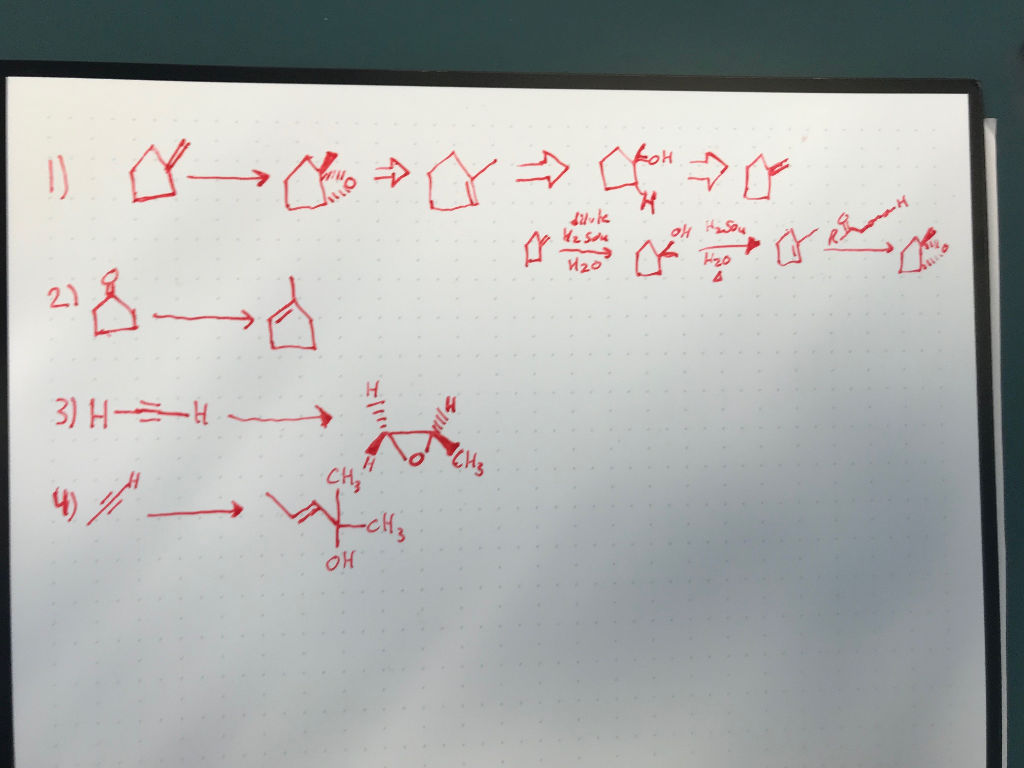 1) O OH H
dilute H2SO4 H2O OH H2SO4 H2O Δ R O O O H O
2) O
3) H H H H O H CH3
4) H CH3 CH3 OH